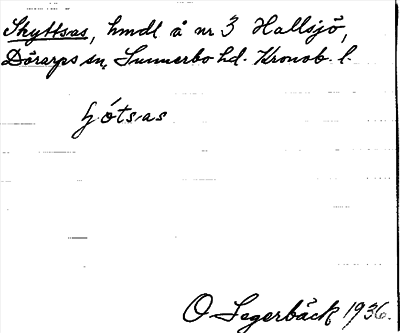 Skyttsas, hmdl å nr 3 Hallsjö,
Dörarps sn, Sunnerbo hd. Kronob. l.
O Segerbäck 1936.